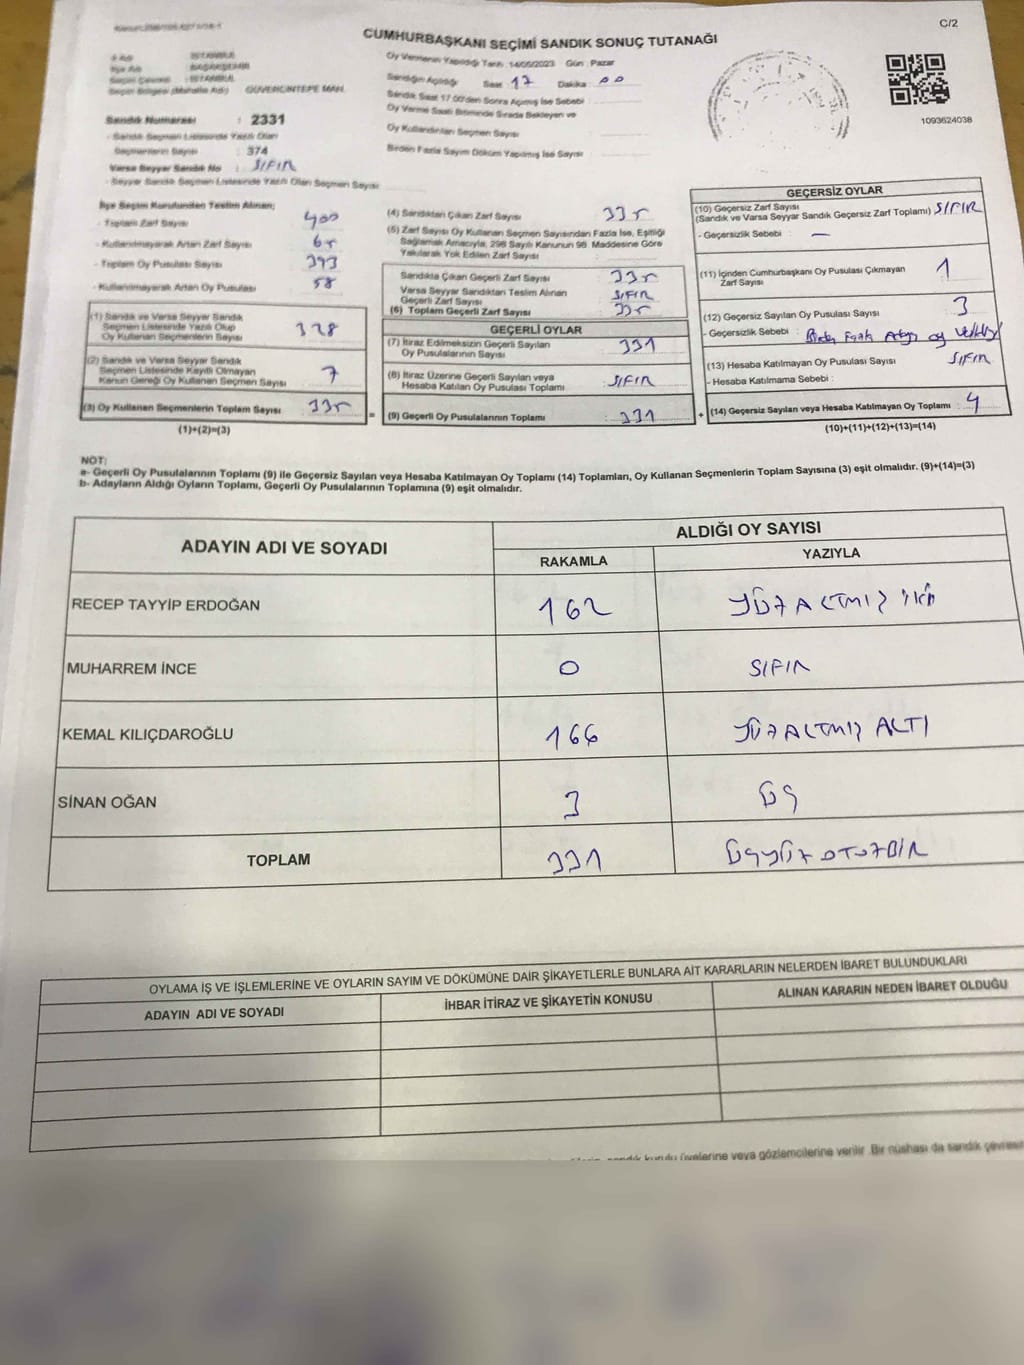 C/2
CUMHURBAŞKANI SEÇİMİ SANDIK SONUÇ TUTANAĞI
İl Adı : İSTANBUL
İlçe Adı : BAŞAKŞEHİR
Seçim Çevresi : İSTANBUL
Seçim Bölgesi (Mahalle Adı) : GÜVERCİNTEPE MAH.
Oy Vermenin Yapıldığı Tarih : 14/05/2023 Gün : Pazar
Sandığın Açıldığı Saat 17 Dakika 00
Sandık Saat 17.00'den Sonra Açılmış İse Sebebi
Oy Verme Saati Bitiminde Sırada Bekleyen ve
Oy Kullandırılan Seçmen Sayısı
Birden Fazla Sayım Döküm Yapılmış İse Sayısı
1093624038
Sandık Numarası : 2331
- Sandık Seçmen Listesinde Yazılı Olan
Seçmenlerin Sayısı : 374
Varsa Seyyar Sandık No : SIFIR
- Seyyar Sandık Seçmen Listesinde Yazılı Olan Seçmen Sayısı
İlçe Seçim Kurulundan Teslim Alınan;
- Toplam Zarf Sayısı 400
- Kullanılmayarak Artan Zarf Sayısı 65
- Toplam Oy Pusulası Sayısı 393
- Kullanılmayarak Artan Oy Pusulası 58
(1) Sandık ve Varsa Seyyar Sandık
Seçmen Listesinde Yazılı Olup
Oy Kullanan Seçmenlerin Sayısı 328
(2) Sandık ve Varsa Seyyar Sandık
Seçmen Listesinde Kayıtlı Olmayan
Kanun Gereği Oy Kullanan Seçmen Sayısı 7
(3) Oy Kullanan Seçmenlerin Toplam Sayısı 335
(1)+(2)=(3)
(4) Sandıktan Çıkan Zarf Sayısı 335
(5) Zarf Sayısı Oy Kullanan Seçmen Sayısından Fazla İse, Eşitliği
Sağlamak Amacıyla, 298 Sayılı Kanunun 98. Maddesine Göre
Yakılarak Yok Edilen Zarf Sayısı :
Sandıkta Çıkan Geçerli Zarf Sayısı 335
Varsa Seyyar Sandıktan Teslim Alınan
Geçerli Zarf Sayısı SIFIR
(6) Toplam Geçerli Zarf Sayısı 335
GEÇERLİ OYLAR
(7) İtiraz Edilmeksizin Geçerli Sayılan
Oy Pusulalarının Sayısı 331
(8) İtiraz Üzerine Geçerli Sayılan veya
Hesaba Katılan Oy Pusulası Toplamı SIFIR
= (9) Geçerli Oy Pusulalarının Toplamı 331
GEÇERSİZ OYLAR
(10) Geçersiz Zarf Sayısı
(Sandık ve Varsa Seyyar Sandık Geçersiz Zarf Toplamı) SIFIR
- Geçersizlik Sebebi : —
(11) İçinden Cumhurbaşkanı Oy Pusulası Çıkmayan
Zarf Sayısı 1
(12) Geçersiz Sayılan Oy Pusulası Sayısı 3
- Geçersizlik Sebebi : Birden Fazla Adaya oy
(13) Hesaba Katılmayan Oy Pusulası Sayısı SIFIR
- Hesaba Katılmama Sebebi :
+ (14) Geçersiz Sayılan veya Hesaba Katılmayan Oy Toplamı : 4
(10)+(11)+(12)+(13)=(14)
NOT:
a- Geçerli Oy Pusulalarının Toplamı (9) ile Geçersiz Sayılan veya Hesaba Katılmayan Oy Toplamı (14) Toplamları, Oy Kullanan Seçmenlerin Toplam Sayısına (3) eşit olmalıdır. (9)+(14)=(3)
b- Adayların Aldığı Oyların Toplamı, Geçerli Oy Pusulalarının Toplamına (9) eşit olmalıdır.
ADAYIN ADI VE SOYADI
ALDIĞI OY SAYISI
RAKAMLA YAZIYLA
RECEP TAYYİP ERDOĞAN 162 YÜZALTMIŞ iki
MUHARREM İNCE 0 SIFIR
KEMAL KILIÇDAROĞLU 166 YÜZALTMIŞ ALTI
SİNAN OĞAN 3 ÜÇ
TOPLAM 331 ÜÇYÜZ OTUZBİR
OYLAMA İŞ VE İŞLEMLERİNE VE OYLARIN SAYIM VE DÖKÜMÜNE DAİR ŞİKAYETLERLE BUNLARA AİT KARARLARIN NELERDEN İBARET BULUNDUKLARI
ADAYIN ADI VE SOYADI
İHBAR İTİRAZ VE ŞİKAYETİN KONUSU
ALINAN KARARIN NEDEN İBARET OLDUĞU
sandık kurulu üyelerine veya gözlemcilerine verilir. Bir nüshası da sandık çevresi